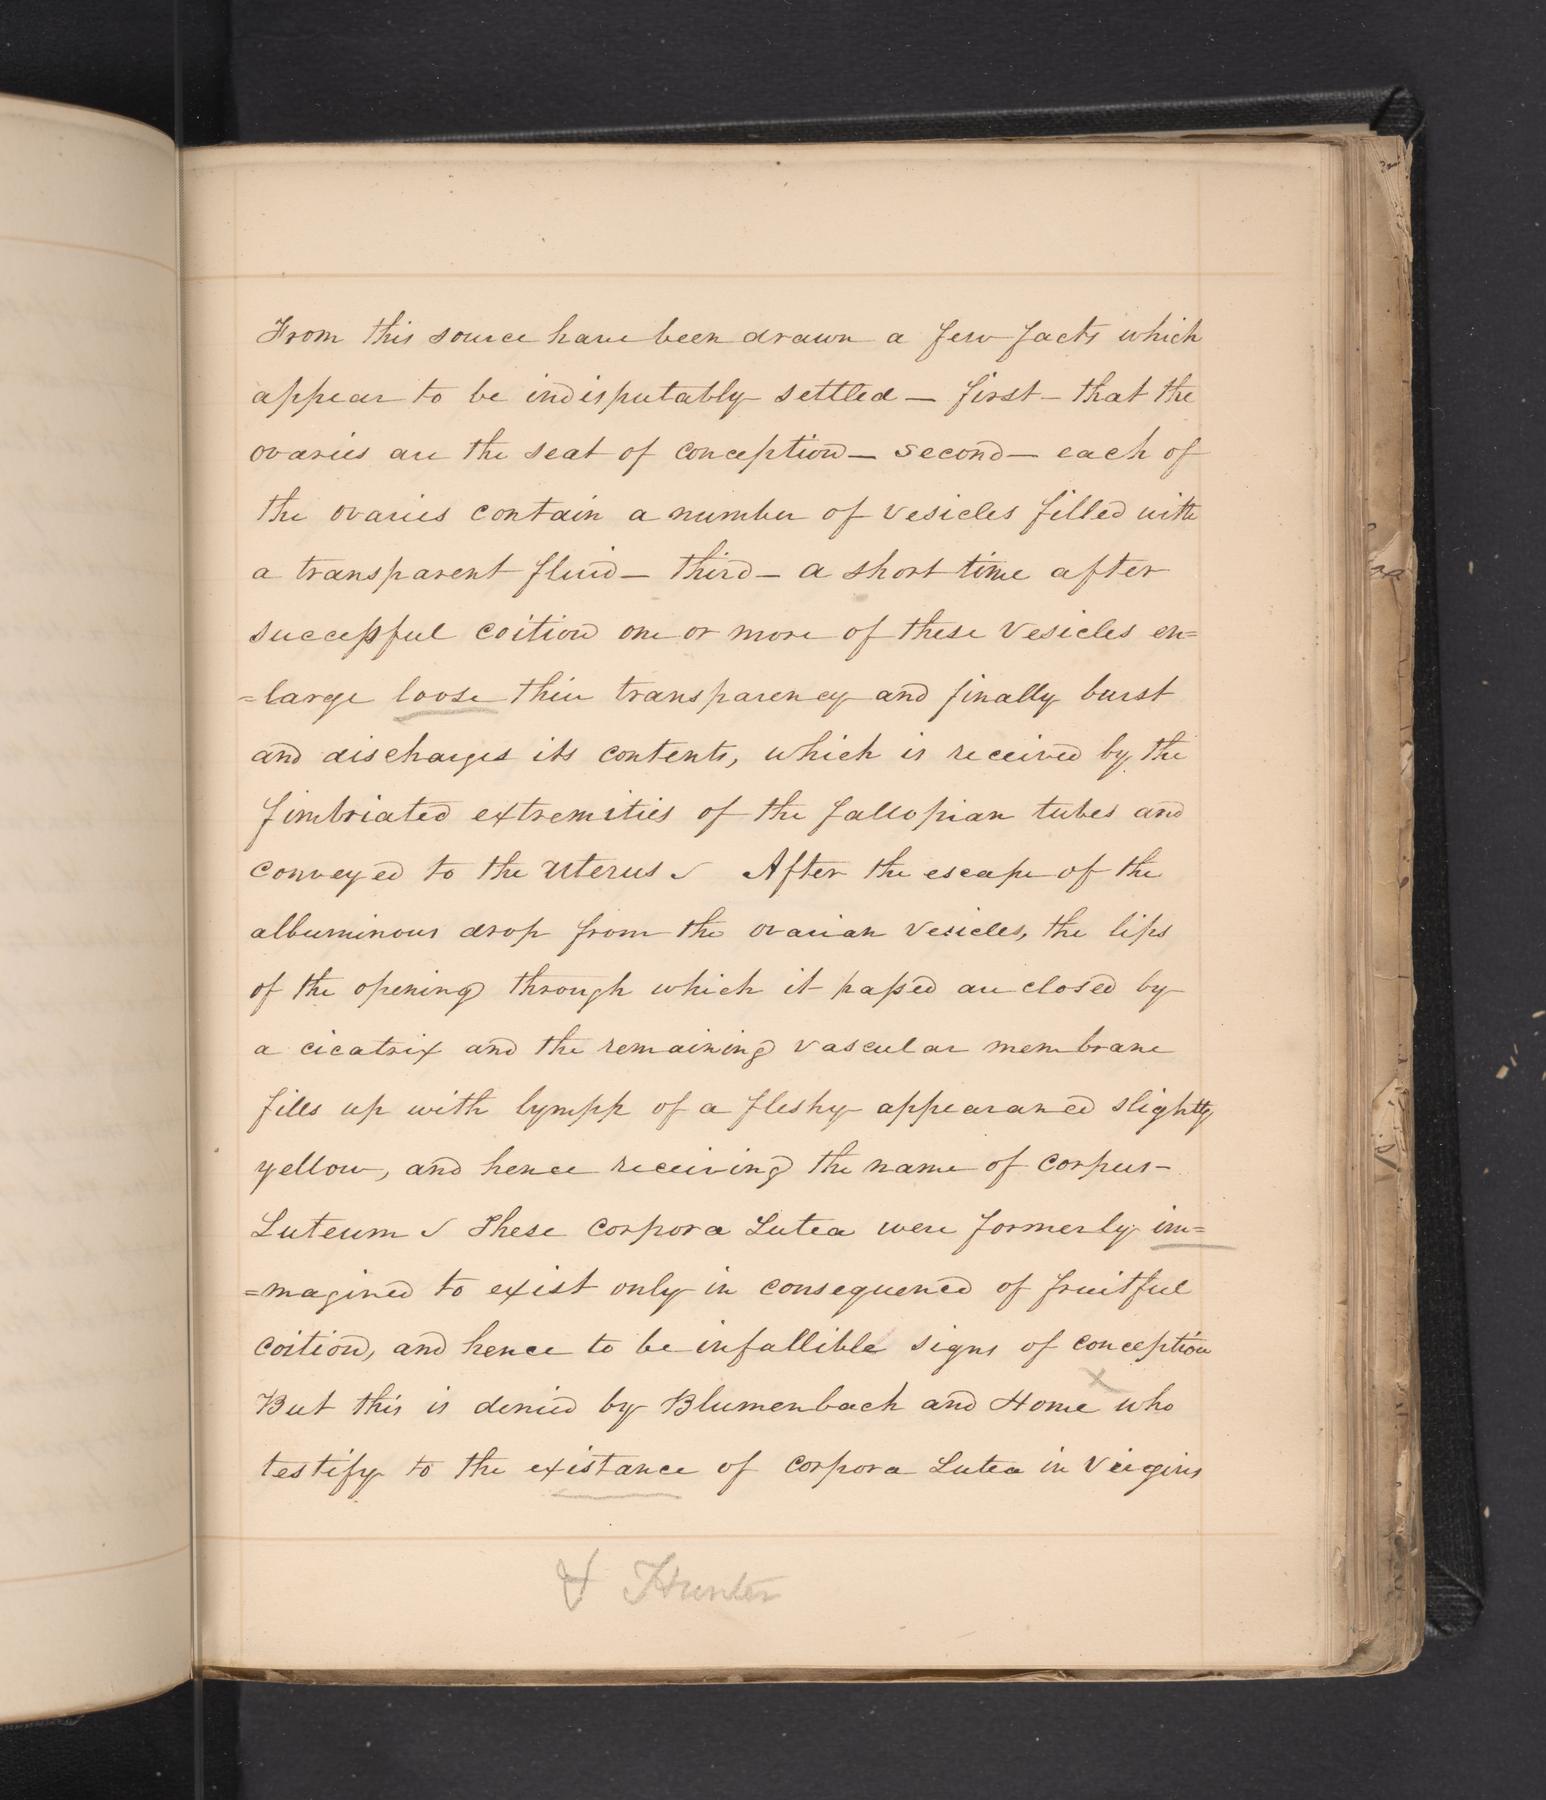 From this source have been drawn a few facts which
appear to be indisputably settled — first — that the
ovaries are the seat of conception — second — each of
the ovaries contain a number of vesicles filled with
a transparent fluid — third — a short time after
successful coition one or more of these vesicles en=
=large loose their transparency and finally burst
and discharges its contents, which is received by the
fimbriated extremities of the fallopian tubes and
conveyed to the uterus. After the escape of the
albuminous drop from the ovarian vesicles, the lips
of the opening through which it passed are closed by
a cicatrix and the remaining vascular membrane
fills up with lymph of a fleshy appearance slightly
yellow, and hence receiving the name of corpus-
Luteum. These corpora Lutea were formerly im=
=magined to exist only in consequence of fruitful
coition, and hence to be infallible signs of conception
x
But this is denied by Blumenbach and Home who
testify to the existance of corpora Lutea in Virgins
& Hunter